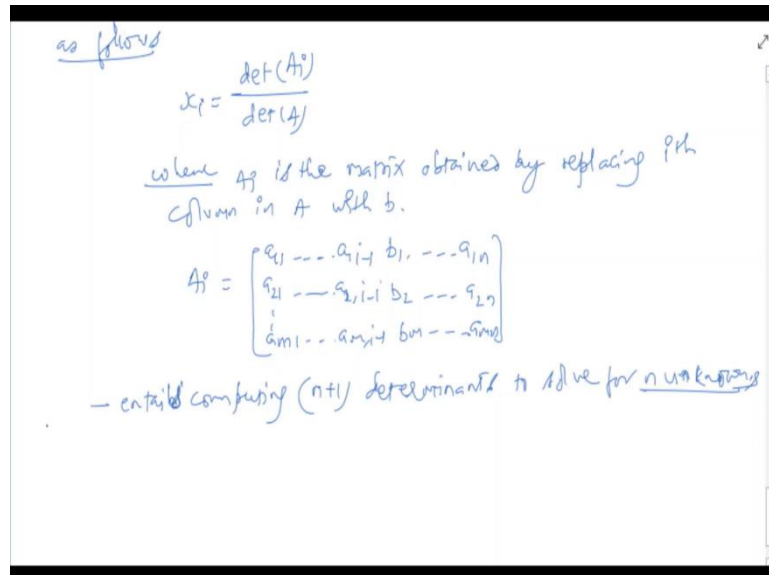 as follows
xi = det(Ai) / det(A)
where Ai is the matrix obtained by replacing ith
column in A with b.
Ai = [ a11 ---- a1 i-1 b1. --- a1n
a21 --- a2,i-1 b2 --- a2n
⋮
am1 -- am,i-1 bm --- amn ]
- entails computing (n+1) determinants to solve for n unknowns